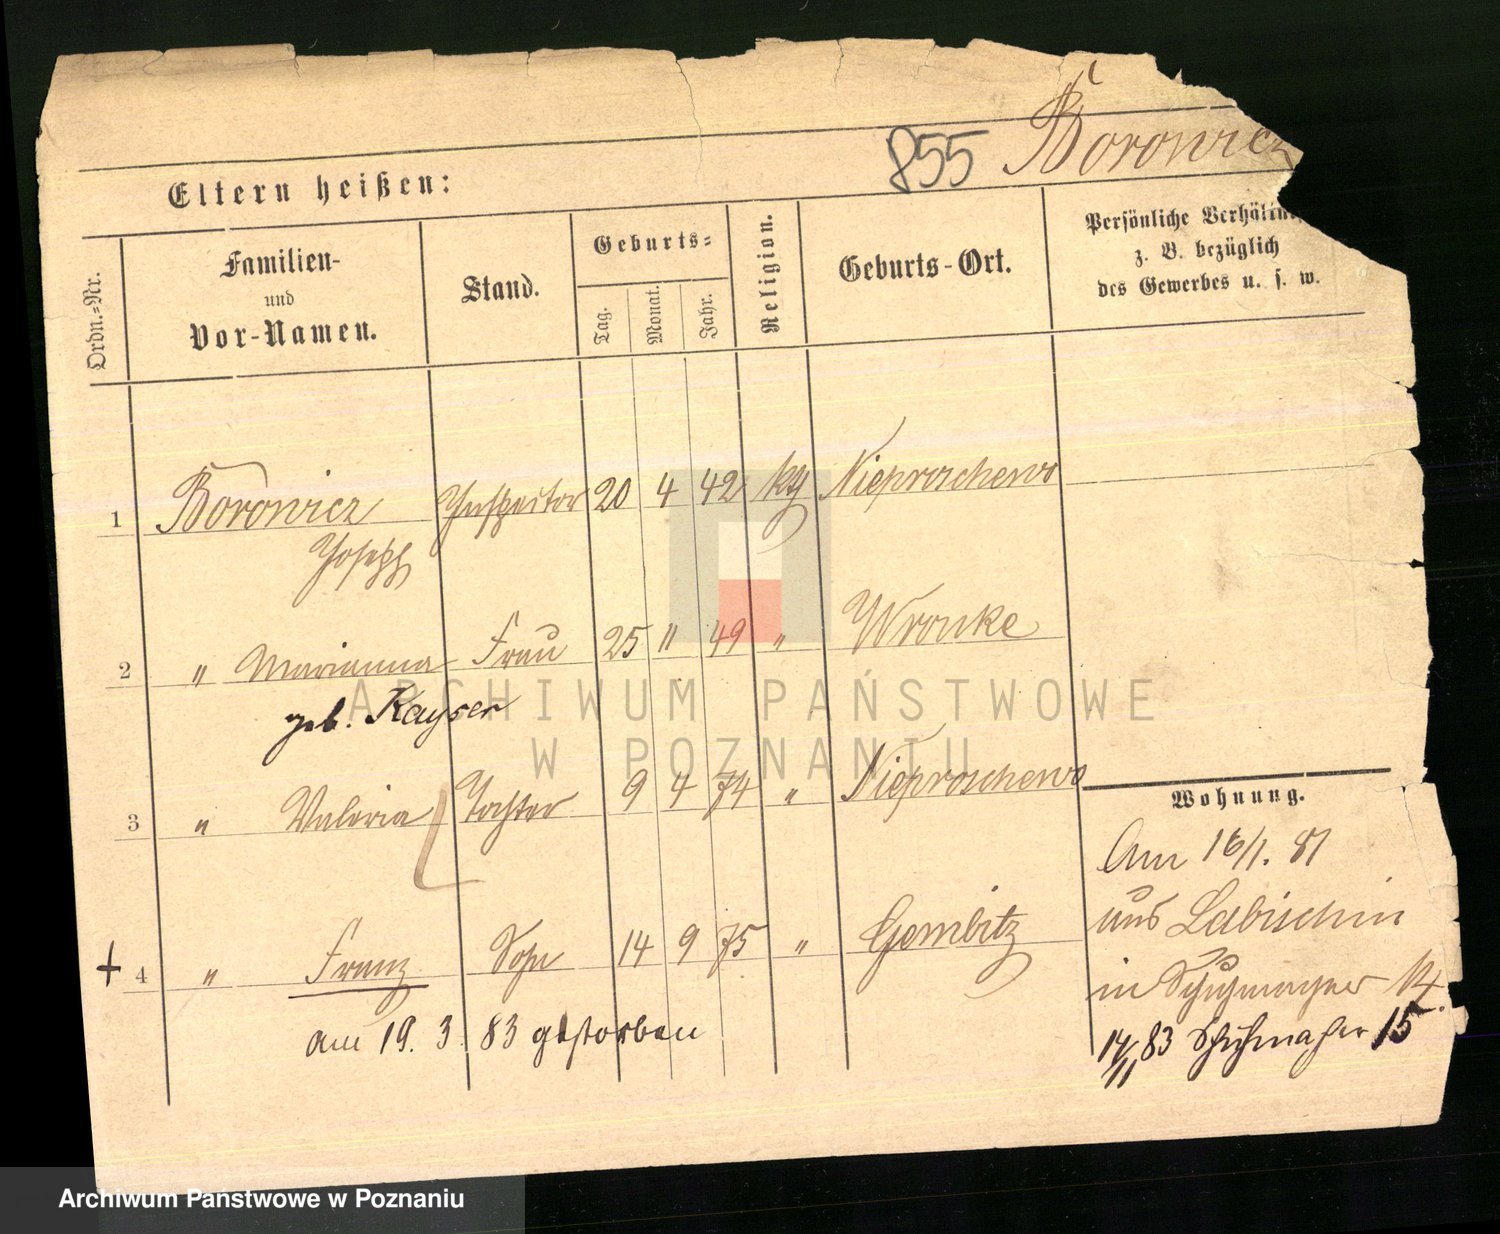 855 Borowicz
Eltern heißen:
Ordn.-Nr.
Familien-
und
Vor-Namen.
Stand.
Geburts-
Tag. Monat. Jahr.
Religion.
Geburts-Ort.
Persönliche
z. B. bezüglich
des Gewerbes u. s. w.
1 Borowicz Inspektor 20 4 42 kg Nieproschewo
Joseph
2 " Marianna Frau 25 11 49 " Wronke
geb. Kayser
3 " Valeria Tochter 9 4 74 " Nieproschewo
+ 4 " Franz Sohn 14 9 75 " Gembitz
am 19. 3. 83 gestorben
Wohnung.
Am 16/1. 81
aus Labischin
in Schuhmacher 14.
14/11 83 Schuhmacher 15
ARCHIWUM PAŃSTWOWE
W POZNANIU
Archiwum Państwowe w Poznaniu